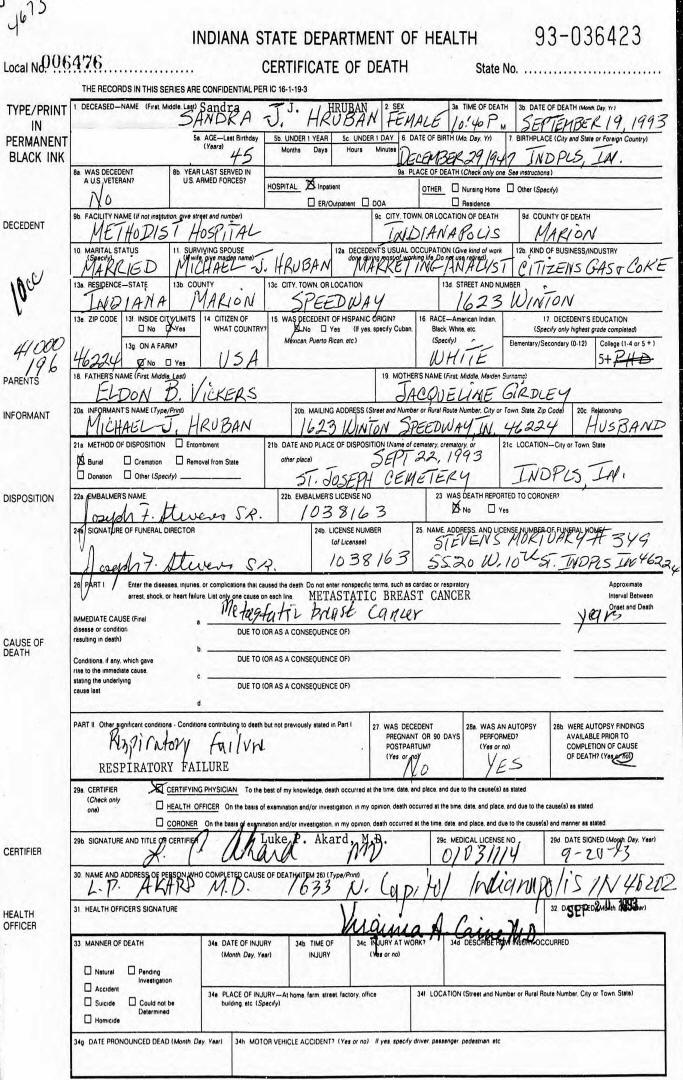 4673
INDIANA STATE DEPARTMENT OF HEALTH 93-036423
Local No. 006476 CERTIFICATE OF DEATH State No.
THE RECORDS IN THIS SERIES ARE CONFIDENTIAL PER IC 16-1-19-3
TYPE/PRINT IN PERMANENT BLACK INK
1 DECEASED—NAME (First, Middle, Last) Sandra J. HRUBAN 2 SEX 3a TIME OF DEATH 3b DATE OF DEATH (Month, Day, Yr)
SANDRA J. HRUBAN FEMALE 10:40P M SEPTEMBER 19, 1993
5a AGE—Last Birthday (Years) 5b UNDER 1 YEAR 5c UNDER 1 DAY 6 DATE OF BIRTH (Mo, Day, Yr) 7 BIRTHPLACE (City and State or Foreign Country)
45 Months Days Hours Minutes DECEMBER 29, 1947 INDPLS, IN.
8a WAS DECEDENT A U.S. VETERAN? 8b YEAR LAST SERVED IN U.S. ARMED FORCES? 9a PLACE OF DEATH (Check only one. See instructions)
NO HOSPITAL X Inpatient OTHER Nursing Home Other (Specify)
ER/Outpatient DOA Residence
DECEDENT
9b FACILITY NAME (If not institution, give street and number) 9c CITY, TOWN, OR LOCATION OF DEATH 9d COUNTY OF DEATH
METHODIST HOSPITAL INDIANAPOLIS MARION
10 MARITAL STATUS (Specify) 11 SURVIVING SPOUSE (If wife, give maiden name) 12a DECEDENT'S USUAL OCCUPATION (Give kind of work done during most of working life. Do not use retired) 12b KIND OF BUSINESS/INDUSTRY
MARRIED MICHAEL J. HRUBAN MARKETING ANALYST CITIZENS GAS & COKE
10cc
13a RESIDENCE—STATE 13b COUNTY 13c CITY, TOWN, OR LOCATION 13d STREET AND NUMBER
INDIANA MARION SPEEDWAY 1623 WINTON
13e ZIP CODE 13f INSIDE CITY LIMITS 14 CITIZEN OF WHAT COUNTRY? 15 WAS DECEDENT OF HISPANIC ORIGIN? 16 RACE—American Indian, Black, White, etc. (Specify) 17 DECEDENT'S EDUCATION (Specify only highest grade completed)
No X Yes X No Yes (If yes, specify Cuban, Mexican, Puerto Rican, etc.)
13g ON A FARM? Elementary/Secondary (0-12) College (1-4 or 5+)
46224 X No Yes USA WHITE 5+ PHD
41000
196
PARENTS
18 FATHER'S NAME (First, Middle, Last) 19 MOTHER'S NAME (First, Middle, Maiden Surname)
ELDON B. VICKERS JACQUELINE GIRDLEY
INFORMANT
20a INFORMANT'S NAME (Type/Print) 20b MAILING ADDRESS (Street and Number or Rural Route Number, City or Town, State, Zip Code) 20c Relationship
MICHAEL J. HRUBAN 1623 WINTON SPEEDWAY IN. 46224 HUSBAND
21a METHOD OF DISPOSITION Entombment 21b DATE AND PLACE OF DISPOSITION (Name of cemetery, crematory, or other place) 21c LOCATION—City or Town, State
X Burial Cremation Removal from State SEPT 22, 1993
Donation Other (Specify) ST. JOSEPH CEMETERY INDPLS, IN.
DISPOSITION
22a EMBALMER'S NAME 22b EMBALMER'S LICENSE NO 23 WAS DEATH REPORTED TO CORONER?
Joseph F. Stevens SR. 1038163 X No Yes
24a SIGNATURE OF FUNERAL DIRECTOR 24b LICENSE NUMBER (of Licensee) 25 NAME, ADDRESS, AND LICENSE NUMBER OF FUNERAL HOME
STEVENS MORTUARY # 349
Joseph F. Stevens SR. 1038163 5520 W. 10th St. INDPLS IN 46224
26 PART I Enter the diseases, injuries, or complications that caused the death. Do not enter nonspecific terms, such as cardiac or respiratory arrest, shock, or heart failure. List only one cause on each line. Approximate Interval Between Onset and Death
METASTATIC BREAST CANCER
IMMEDIATE CAUSE (Final disease or condition resulting in death) a Metastatic breast cancer years
DUE TO (OR AS A CONSEQUENCE OF)
b
CAUSE OF DEATH
DUE TO (OR AS A CONSEQUENCE OF)
Conditions, if any, which gave rise to the immediate cause, stating the underlying cause last
c
DUE TO (OR AS A CONSEQUENCE OF)
d
PART II Other significant conditions - Conditions contributing to death but not previously stated in Part I 27 WAS DECEDENT PREGNANT OR 90 DAYS POSTPARTUM? (Yes or no) 28a WAS AN AUTOPSY PERFORMED? (Yes or no) 28b WERE AUTOPSY FINDINGS AVAILABLE PRIOR TO COMPLETION OF CAUSE OF DEATH? (Yes or no)
Respiratory Failure
RESPIRATORY FAILURE NO YES
29a CERTIFIER (Check only one) X CERTIFYING PHYSICIAN To the best of my knowledge, death occurred at the time, date, and place, and due to the cause(s) as stated
HEALTH OFFICER On the basis of examination and/or investigation, in my opinion, death occurred at the time, date, and place, and due to the cause(s) as stated
CORONER On the basis of examination and/or investigation, in my opinion, death occurred at the time, date, and place, and due to the cause(s) and manner as stated
CERTIFIER
29b SIGNATURE AND TITLE OF CERTIFIER Luke P. Akard, M.D. 29c MEDICAL LICENSE NO 29d DATE SIGNED (Month, Day, Year)
L. P. Akard MD 01031114 9-20-93
30 NAME AND ADDRESS OF PERSON WHO COMPLETED CAUSE OF DEATH (ITEM 26) (Type/Print)
L.P. AKARD M.D. 1633 N. Capitol Indianapolis IN 46202
HEALTH OFFICER
31 HEALTH OFFICER'S SIGNATURE Virginia A. Caine, M.D. 32 SEP 20 1993
33 MANNER OF DEATH 34a DATE OF INJURY (Month, Day, Year) 34b TIME OF INJURY 34c INJURY AT WORK? (Yes or no) 34d DESCRIBE HOW INJURY OCCURRED
Natural Pending Investigation
Accident
Suicide Could not be Determined
Homicide
34e PLACE OF INJURY—At home, farm, street, factory, office building, etc. (Specify) 34f LOCATION (Street and Number or Rural Route Number, City or Town, State)
34g DATE PRONOUNCED DEAD (Month, Day, Year) 34h MOTOR VEHICLE ACCIDENT? (Yes or no) If yes, specify driver, passenger, pedestrian, etc